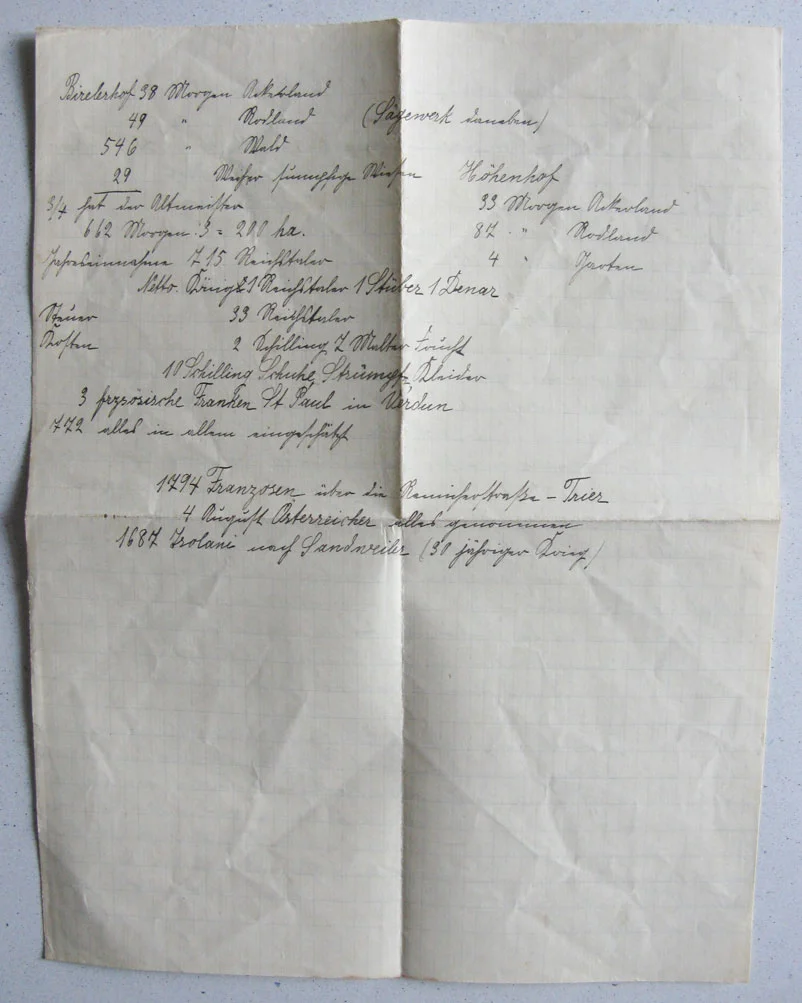 Birelerhof 38 Morgen Ackerland
49 " Rodland (Sägewerk daneben)
546 " Wald
29 Weiher sumpfige Wiesen Höhenhof
3/4 hat der Altmeister 33 Morgen Ackerland
662 Morgen : 3 = 200 ha. 87 " Rodland
Jahreseinnahme 715 Reichstaler 4 " Garten
Netto. 1 Reichstaler 1 Stüber 1 Denar
Steuer 33 Reichstaler
Kosten 2 Schilling 7 Malter Frucht
10 Schilling Schuhe, Strümpf Kleider
3 frzösische Franken St Paul in Verdun
772 alles in allem eingeschätzt
1794 Franzosen über die Remicherstraße – Trier
4 August Österreicher alles genommen
1687 Isolani nach Sandweiler (30 jähriger Krieg)